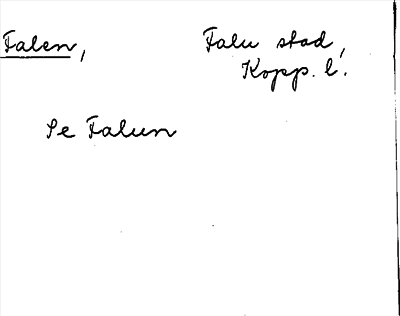 Falen,
Falu stad,
Kopp. l.
Se Falun